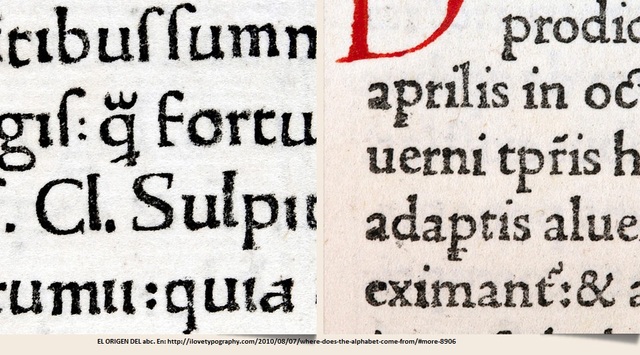 ıtıbusſumn
gıſ: q̃ fortu
. Cl. Sulpıt
tumıı:quıa
D
prodic
aprilis in oct
uerni tpr̃is h
adaptis alue
eximant̃:& a
EL ORIGEN DEL abc. En: http://ilovetypography.com/2010/08/07/where-does-the-alphabet-come-from/#more-8906